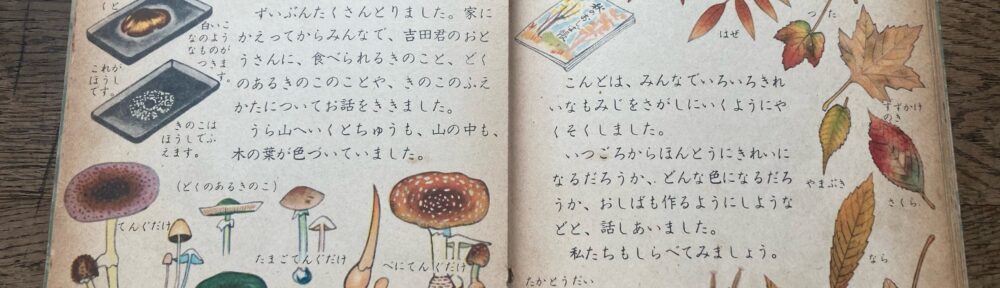 ずいぶんたくさんとりました。家に
かえってからみんなで、吉田君のおと
うさんに、食べられるきのこと、どく
のあるきのこのことや、きのこのふえ
かたについてお話をききました。
うら山へいくとちゅうも、山の中も、
木の葉が色づいていました。
白いこ
なのよう
なものが
つきま
す。
これが
ほうし
です。
きのこは
ほうしでふ
えます。
(どくのあるきのこ)
てんぐだけ
たまごてんぐだけ
べにてんぐだけ
こんどは、みんなでいろいろきれ
いなもみじをさがしにいくようにや
くそくしました。
いつごろからほんとうにきれいに
なるだろうか、どんな色になるだろ
うか、おしばも作るようにしような
どと、話しあいました。
私たちもしらべてみましょう。
はぜ
つた
すずかけ
のき
やまぶき
さくら
なら
たかとうだい